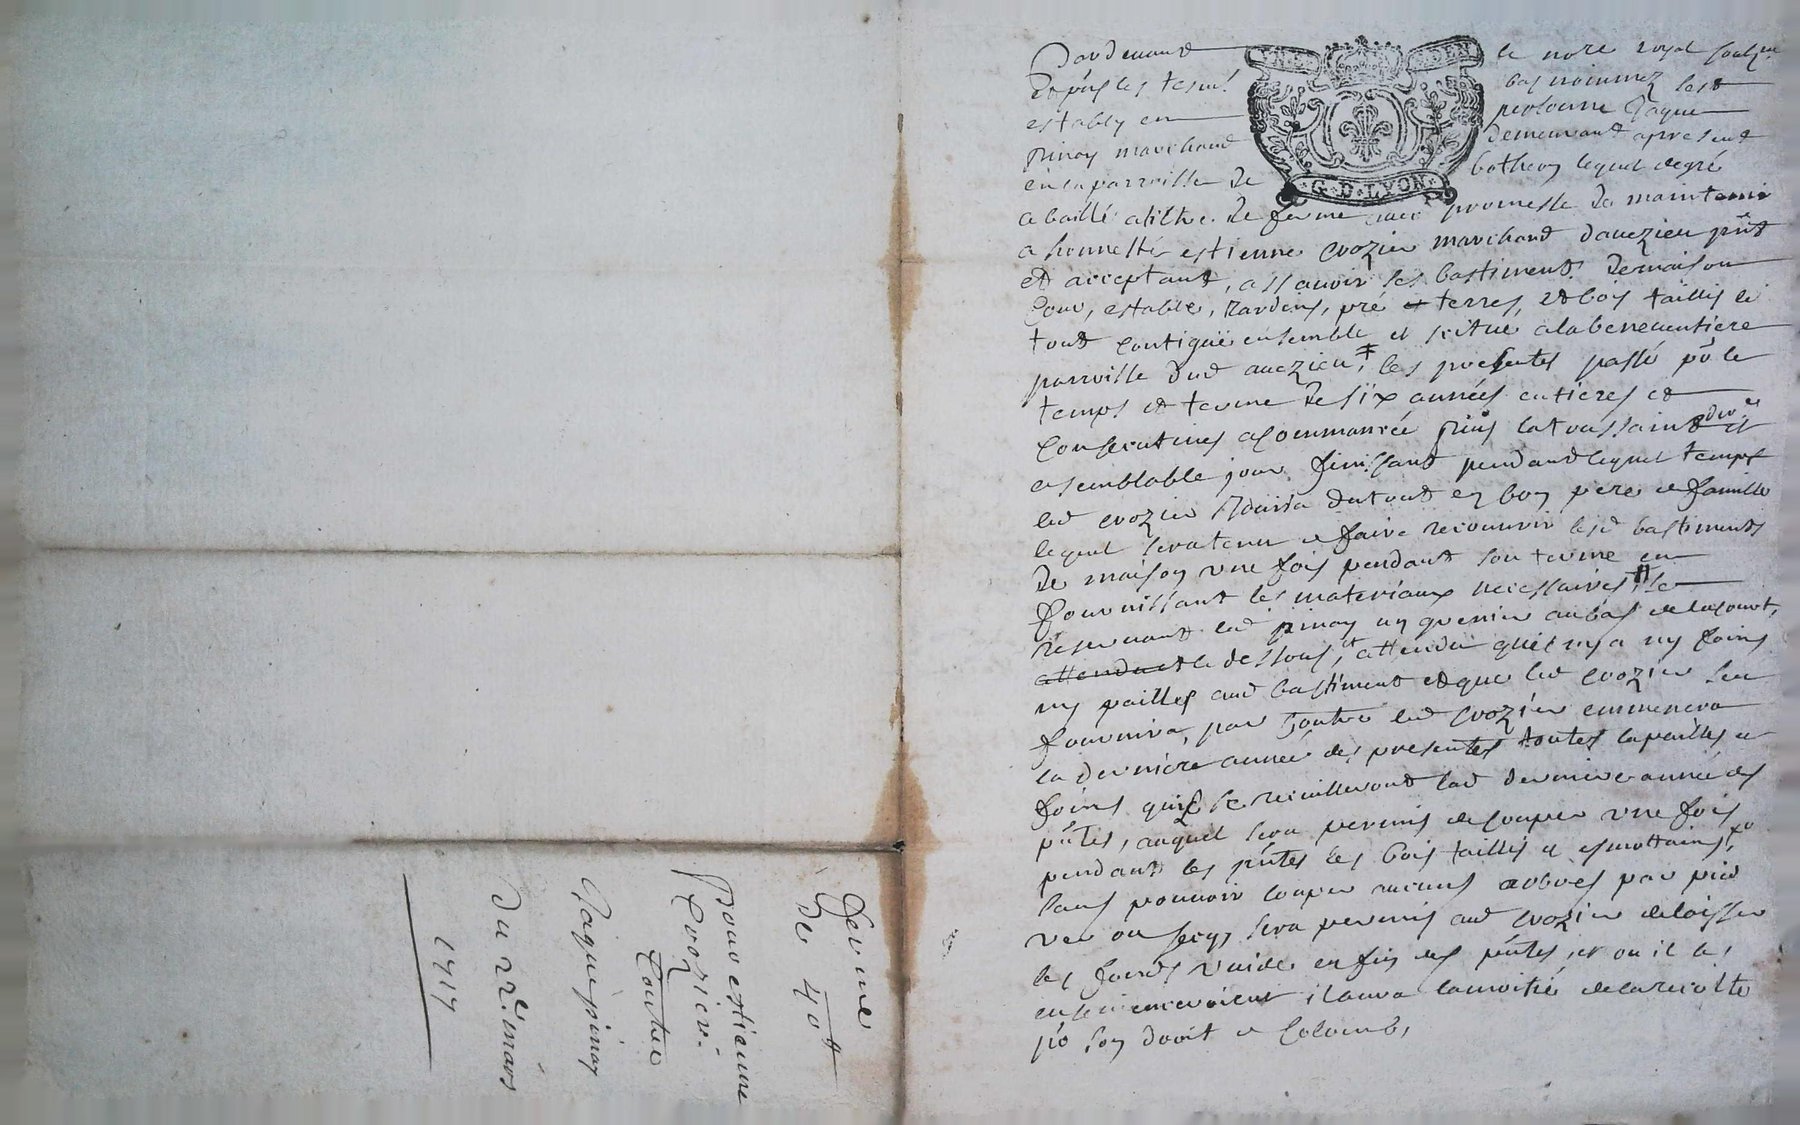 Pardevant le nore royal soubz.né
Et pñs les tesm! bas nommez lest
estably en personne Jaque
pinay marchand demeurant apresent
en la parroisse de botheon lequel degré
a baillé atiltre de ferme avec promesse de maintenir
a honneste estienne crozier marchand davezieu pñt
et acceptant, assavoir ses bastiment de maison
Cour, estable, Jardins, pré et terres, et bois taillis le
tout contigue ensemble et scitue a la beneventiere
parroisse dud avezieu, ‡ les presentes passé pr le
temps et terme de six années entieres et
Consecutives a commancée puis la toussaint der.e et
a semblable jour finissant pendant lequel temps
led crozier Jouira du tout en bon pere de famille
lequel sera tenu de faire recouvrir lesd bastiments
De maison une fois pendant son terme en
fournissant les materiaux necessaires # se
reservant led pinay un grenier au bas de la court,
attendu et le dessous, et attendu quil ny a ny foins
ny pailles aud bastiment et que led crozier sen
fournira, par Contre led Crozier emmenera
la derniere année des presentes toutes la pailles et
foins quil se recuilleront lad derniere année des
pñtes, auquel sera permis de couper une fois
pendant les pñtes les bois taillis et esmottains,
sans pouvoir couper aucuns arbres par pied
ver ou secq, sera permis aud Crozier de loisser
les fonds vuide en fin des pñtes, et ou il les
ensemenceroient il aura la moitié de la recolte
pr son droit de Colonnes,
ferme
De 40 #
Pour estienne
Crozier.
Contre
Jaque pinay
Du 22e. mars
1717